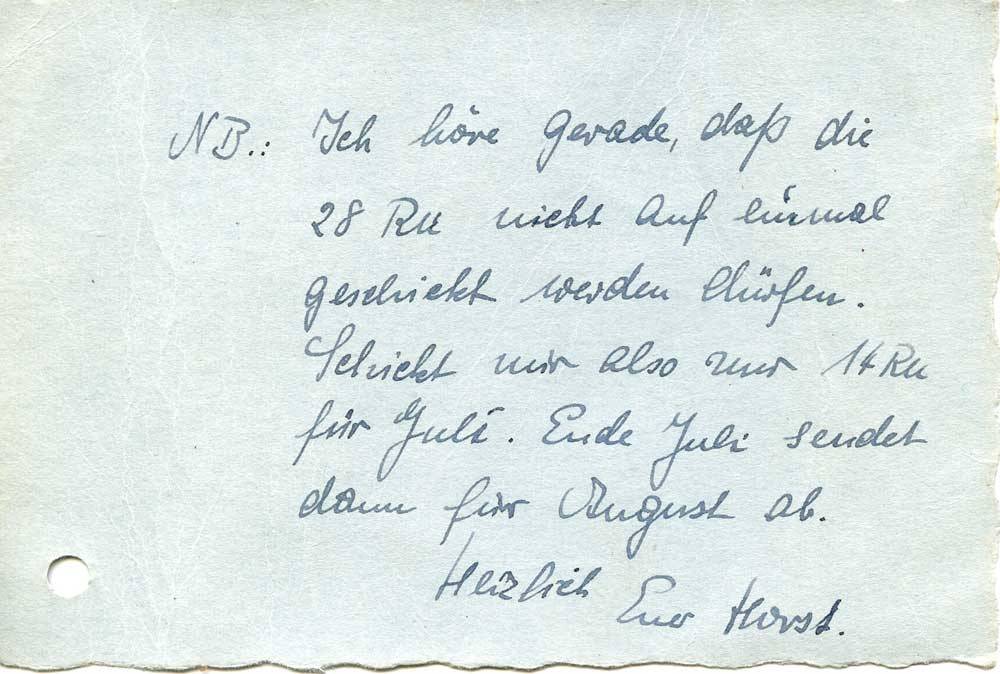 NB.: Ich höre gerade, daß die
28 RM nicht auf einmal
geschickt werden dürfen.
Schickt mir also nur 14 RM
für Juli. Ende Juli sendet
dann für August ab.
Herzlich
Euer Horst.